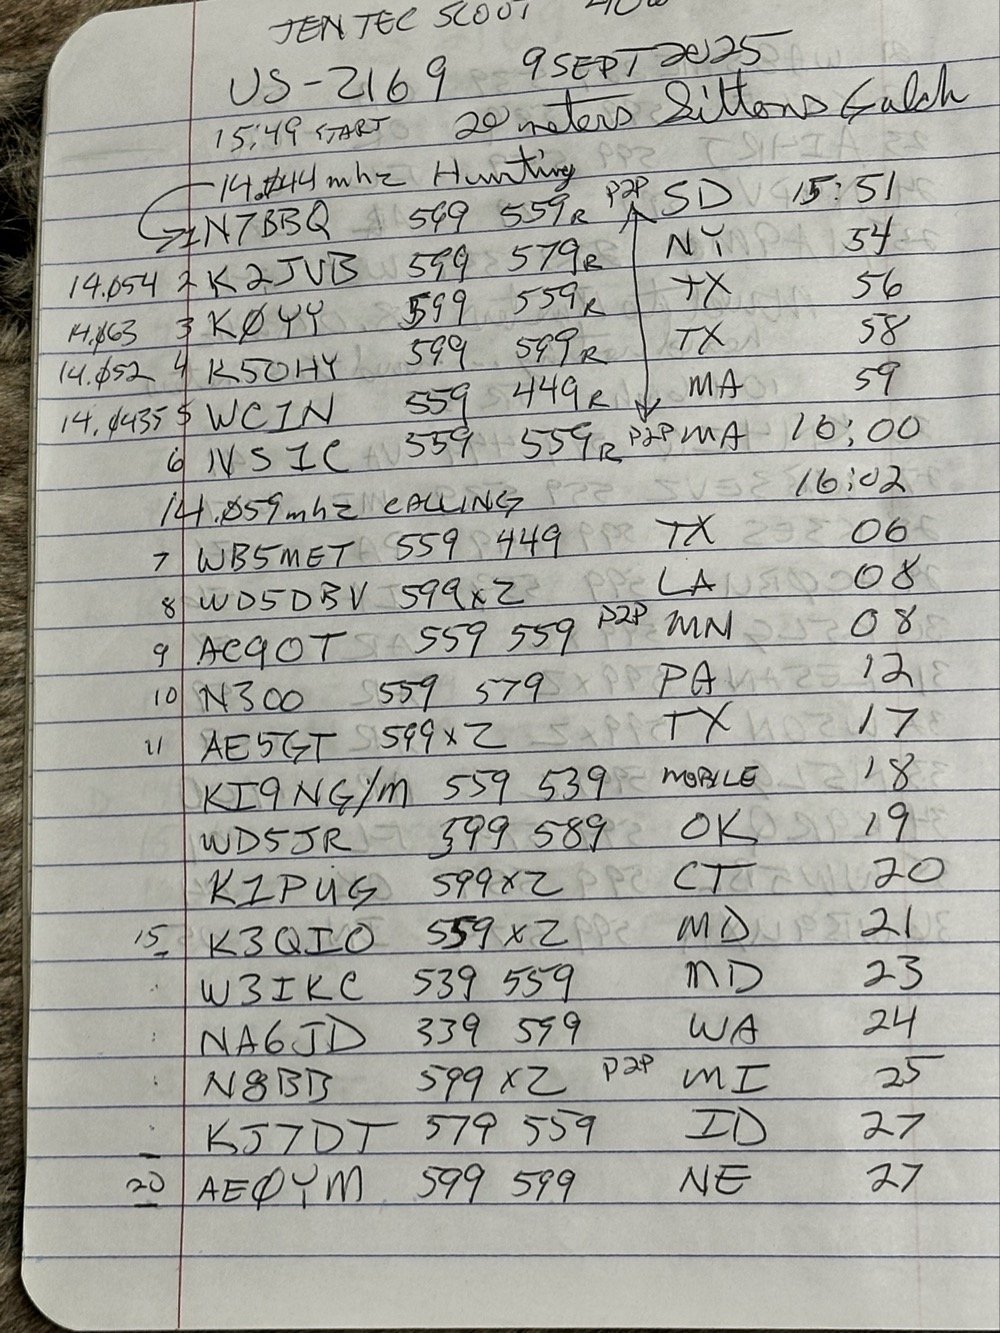 JEN TEC SCOUT 40w
US-2169 9 SEPT 2025
15:49 START 20 meters Sittons Gulch
14.Ø44 mhz Hunting
1 N7BBQ 599 559R P2P SD 15:51
14.Ø54 2 K2JVB 599 579R NY 54
14.Ø63 3 KØYY 599 559R TX 56
14.Ø52 4 K5OHY 599 599R TX 58
14.Ø435 5 WC1N 559 449R MA 59
6 NS1C 559 559R P2P MA 16:00
14.Ø59 mhz CALLING 16:02
7 WB5MET 559 449 TX 06
8 WD5DBV 599x2 LA 08
9 AC9OT 559 559 P2P MN 08
10 N3OO 559 579 PA 12
11 AE5GT 599x2 TX 17
KI9NG/M 559 539 MOBILE 18
WD5JR 599 589 OK 19
K1PUG 599x2 CT 20
15 K3QIO 559x2 MD 21
W3IKC 539 559 MD 23
NA6JD 339 599 WA 24
N8BB 599x2 P2P MI 25
KJ7DT 579 559 ID 27
20 AEØYM 599 599 NE 27